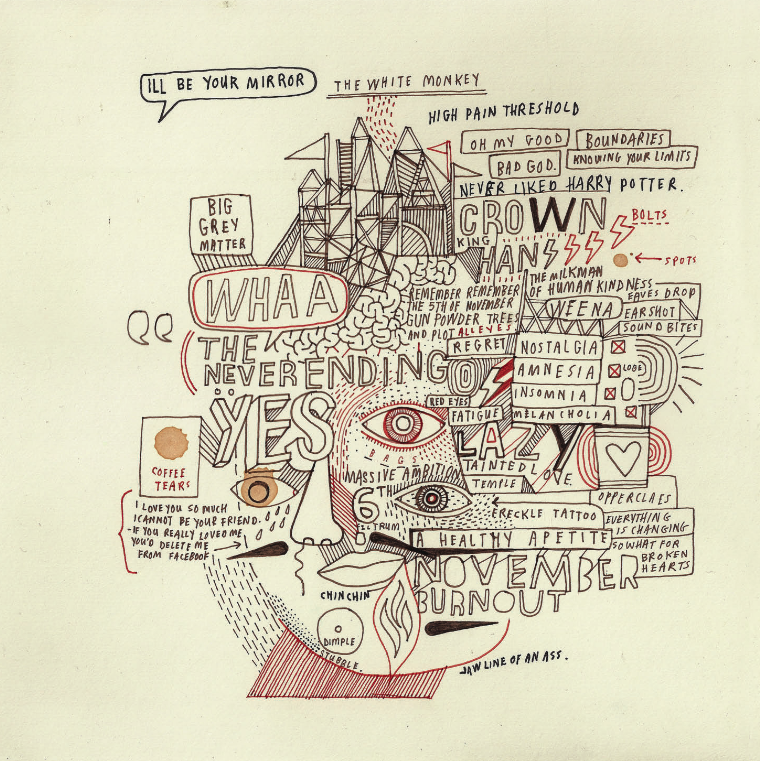 ILL BE YOUR MIRROR
THE WHITE MONKEY
HIGH PAIN THRESHOLD
OH MY GOOD
BOUNDARIES
BAD GOD.
KNOWING YOUR LIMITS
NEVER LIKED HARRY POTTER.
BIG
GREY
MATTER
CROWN
BOLTS
KING
HAN
SPOTS
THE MILKMAN
OF HUMAN KINDNESS
WHAA
REMEMBER REMEMBER
THE 5TH OF NOVEMBER
GUN POWDER TREES
AND PLOT ALL EYES
WEENA
EAVES DROP
EARSHOT
SOUND BITES
THE
NEVERENDINGO
REGRET
NOSTALGIA
AMNESIA
LOBE
INSOMNIA
RED EYES
FATIGUE
MELANCHOLIA
YES
LAZY
BAGS
COFFEE
TEARS
MASSIVE AMBITION
TAINTED LOVE
TEMPLE
6TH
OPPERCLAES
I LOVE YOU SO MUCH
I CANNOT BE YOUR FRIEND.
-IF YOU REALLY LOVED ME
YOU'D DELETE ME
FROM FACEBOOK
FRECKLE TATTOO
EVERYTHING
IS CHANGING
A HEALTHY APETITE
SO WHAT FOR
BROKEN
HEARTS
NOVEMBER
BURNOUT
CHINCHIN
DIMPLE
STUBBLE.
JAW LINE OF AN ASS.